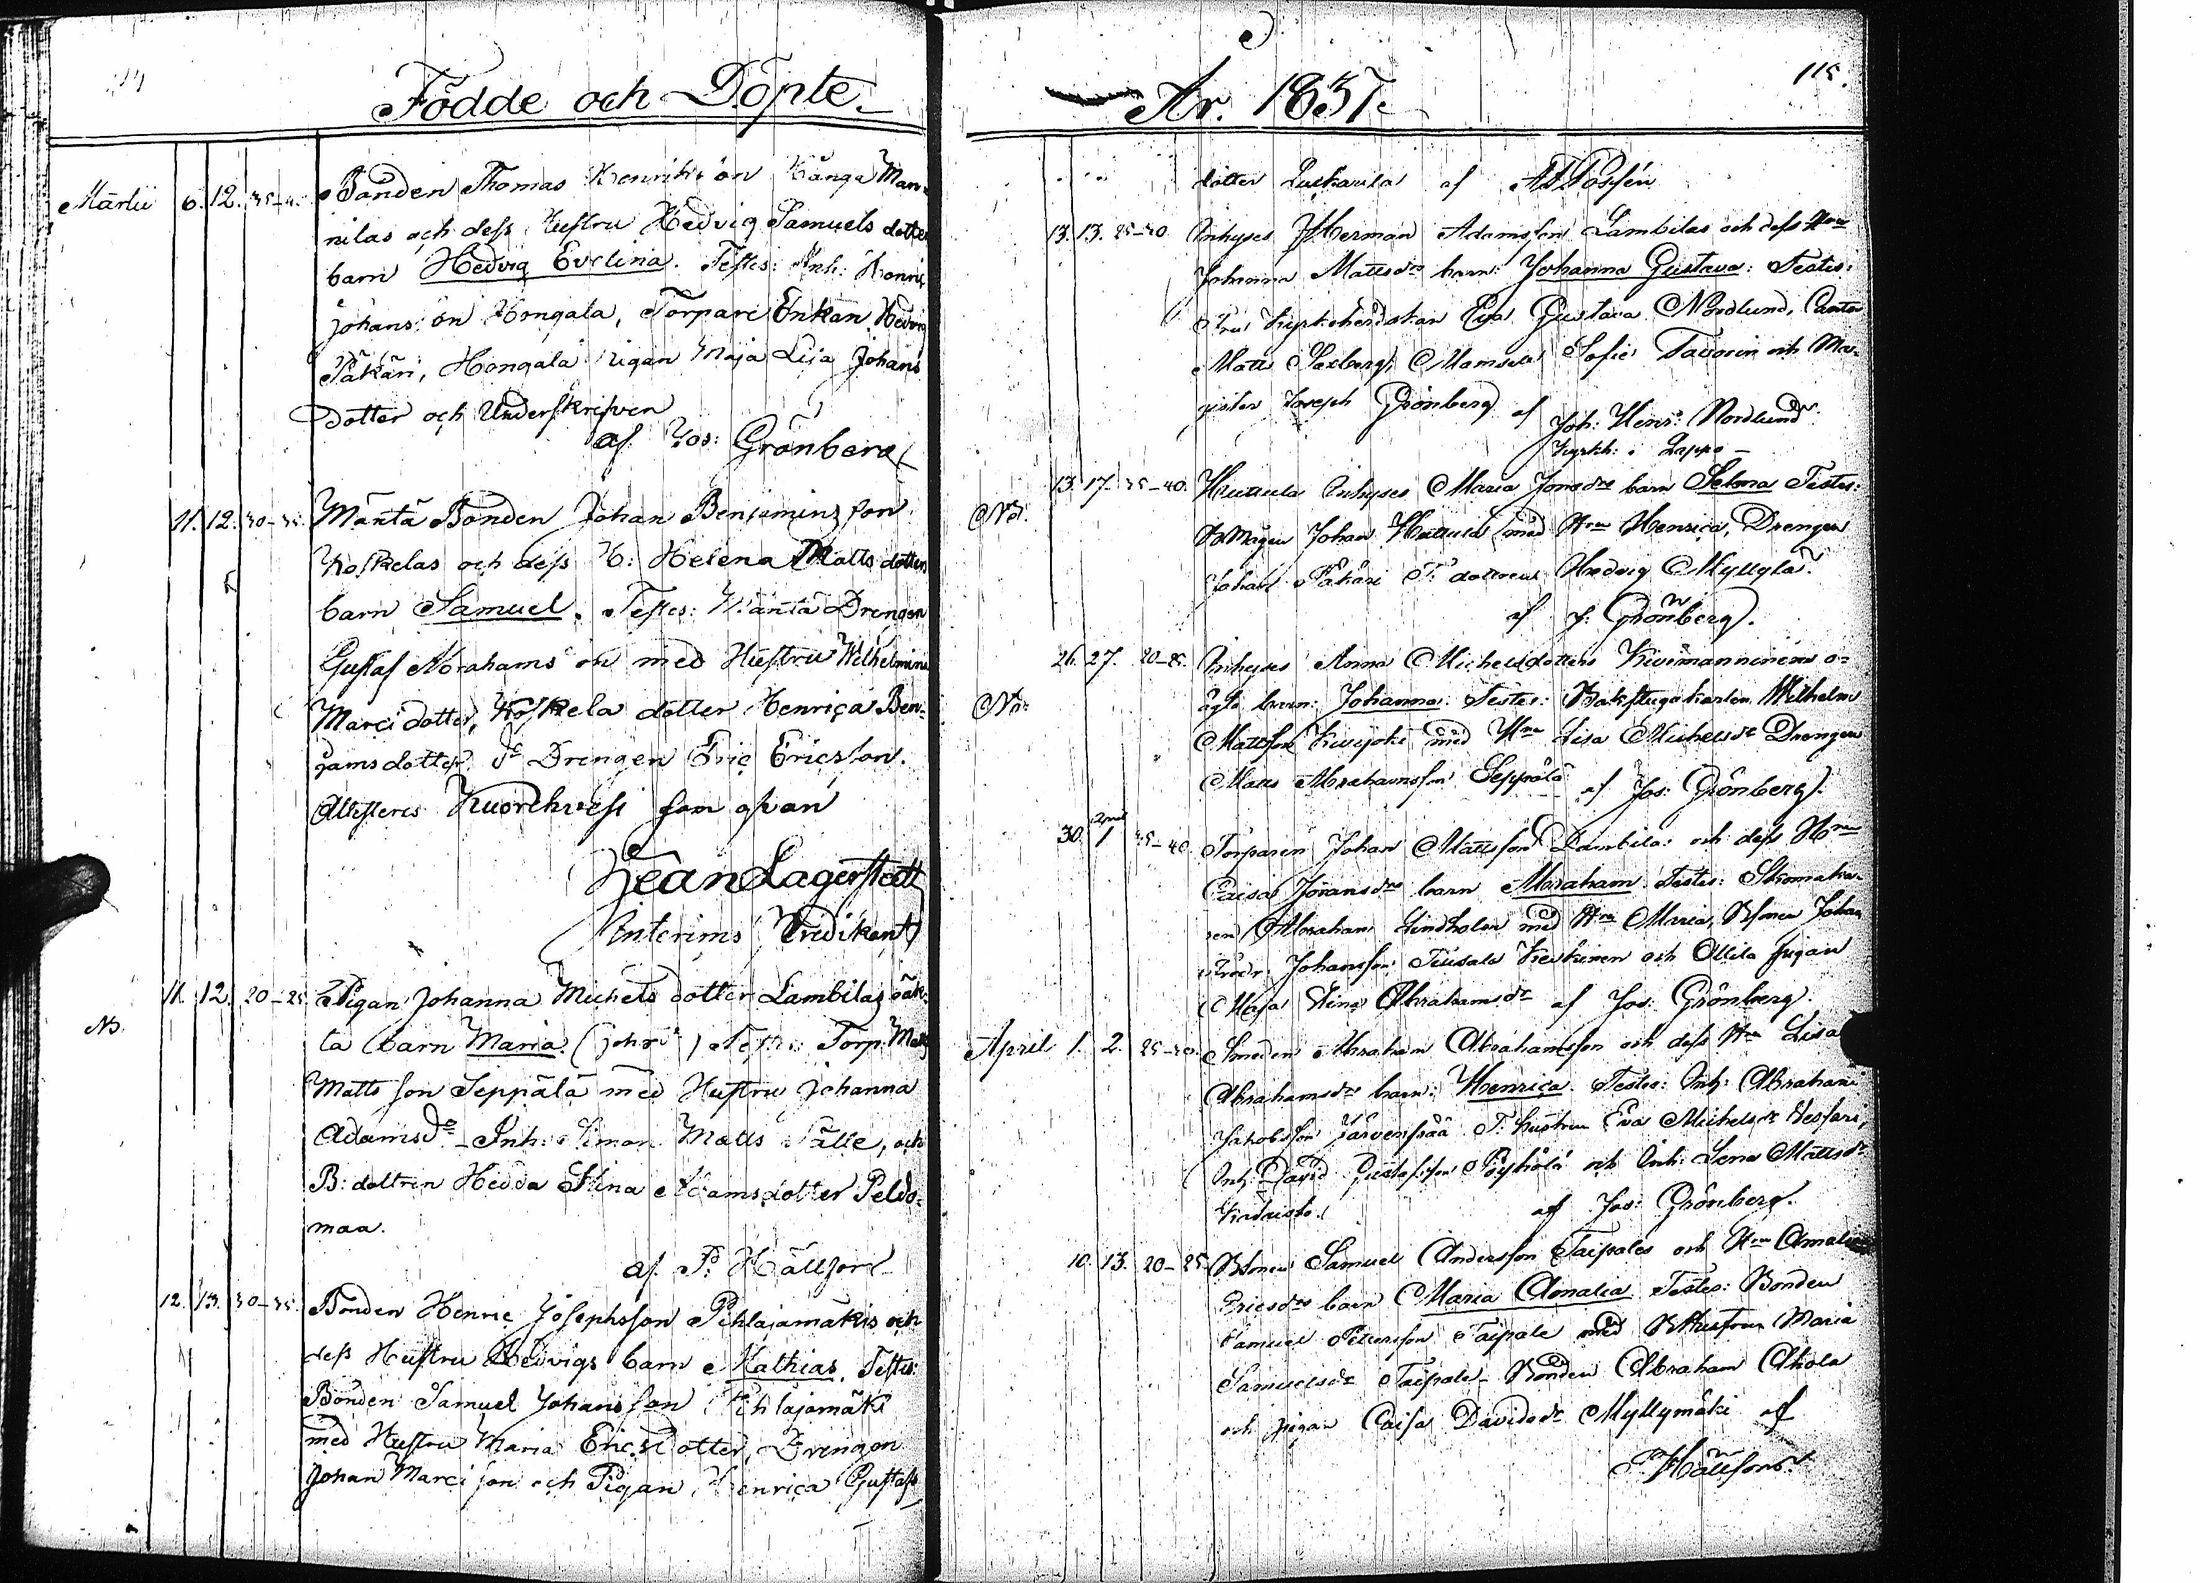 Födde och Döpte
Martii 6. 12. 35-40. Bonden Thomas Henriksson Kånga Man-
nilas och dess Hustru Hedvig Samuels dotter
barn Hedvig Evelina. Testes: Inh: Henric
Johansson Hongala, Torpare Enkan Hedvig
Päkäri, Hongala Pigan Maja Lisa Johans
dotter och Underskrifven
af Jos: Grönberg
11. 12. 30-35. Mänta Bonden Johan Benjaminsson
Koskelas och dess H: Helena Matts dotters
barn Samuel. Testes: Mäntä Drengen
Gustaf Abrahamsson med Hustru Wilhelmina
Marci dotter, Koskela dotter Henrica Ben-
jams dotter Dr Drengen Eric Ericsson.
Attesteres Kuorehvesi som ofvan
Jean Lagerstedt
Interims Predikant
11. 12. 20-25. Pigan Johanna Michels dotter Lambilas oäk-
NB. ta barn Maria. Testes: Torp: Matts
Matts son Seppälä med Hustru Johanna
Adamsdr Inh: Simon Matts Sälle, och
B: dottren Hedda Stina Adamsdotter Peldo-
maa.
af P. Hällfors
12. 13. 30-35. Bonden Henric Josephsson Pihlajamäkis och
dess Hustru Hedvigs barn Mathias. Testes:
Bonden Samuel Johansson Pihlajamäki
med Hustru Maria Ericsdotter, Drengen
Johan Marcisson och Pigan Henrica Gustafs
År. 1837.
115.
dotter af
13. 13. 25-30 Inhyses Herman Adamsson Lambilas och dess Hru
Johanna Mattsdrs barn: Johanna Gustava: Testes:
Fru Kyrkoherdskan Eva Gustava Nordlund, Cantor
Matts Saxberg, Mamsell Sofie och Ma-
gister Joseph Grönberg af
Joh: Henr: Nordlund
Kyrkh: i Lappo
13. 17. 35-40. Huttula Inhyses Maria Jonsdrs barn Selma Testes:
No. Johan Huttula med Hru Henrica, Drengen
Johan Päkäri T. dottren Hedvig Myllylä.
af J: Grönberg.
26. 27. 20-25. Inhyses Anna Michelsdotters Kivimanninens o-
No. ägta barn: Johanna: Testes: Backstugukarlen Wilhelm
Mattsson Kivijoki med Hru Lisa Michelsdr Drengen
Matts Abrahamsson Seppälä af Jos: Grönberg.
30. April 1 35-40. Torparen Johan Mattsson Lambila: och dess Hru
Caisa Joransdrs barn Abraham Testes: Skomaka-
ren Abraham Lindholm med Hru Maria, Bsonen Johan
Johansson och Ollila pigan
Maja Stina Abrahamsdr af Jos: Grönberg.
April 1. 2. 25-30. Smeden Abraham Abrahamsson och dess Hru Lisa
Abrahamsdrs barn: Henrica. Testes: Inh: Abraham
Jakobsson Järvenpää T: hustrun Eva Michelsdr
Inh: David Gustafsson Pöyhölä och Inh: Lena Mattsdr
af Jos: Grönberg.
10. 13. 20-25. Bsonen Samuel Andersson Taipales och Hru Amalia
Ericsdrs barn Maria Amalia Testes: Bonden
Samuel Pettersson Taipale med Hustrun Maria
Samuelsdr Taipale Bonden Abraham Ahola
och pigan Caisa Davidsdr Myllymäki af
P. Hällfors